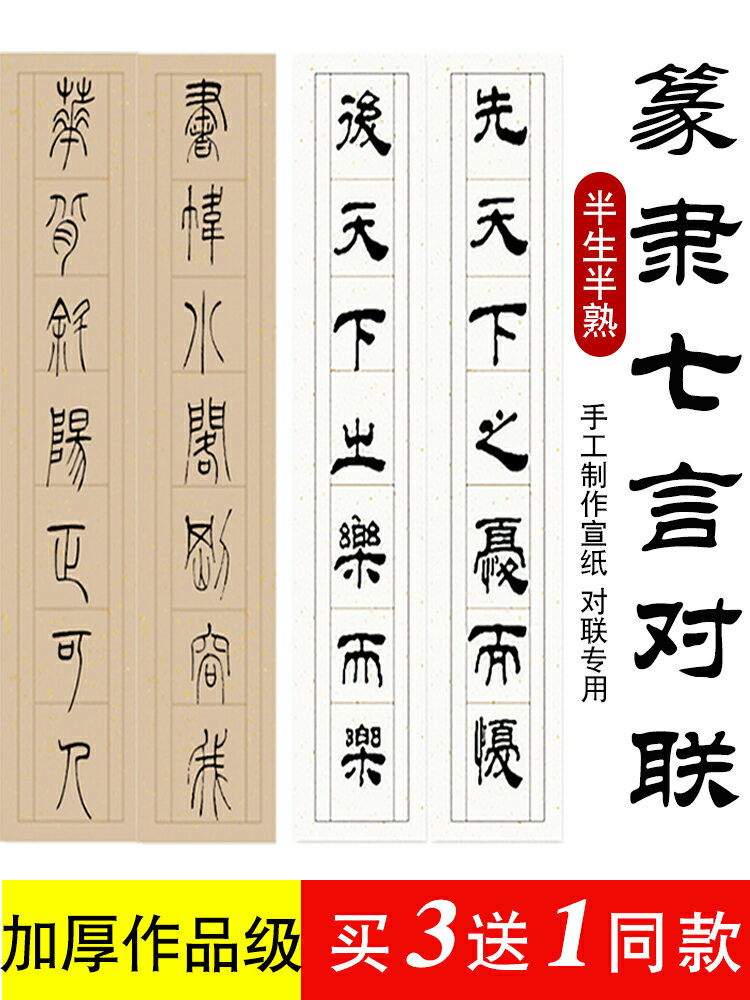 篆隶七言对联
半生半熟
手工制作宣纸 对联专用
先天下之憂而憂
後天下之樂而樂
書幃水閣剛容我
華斜陽正可人
加厚作品级
买3送1同款